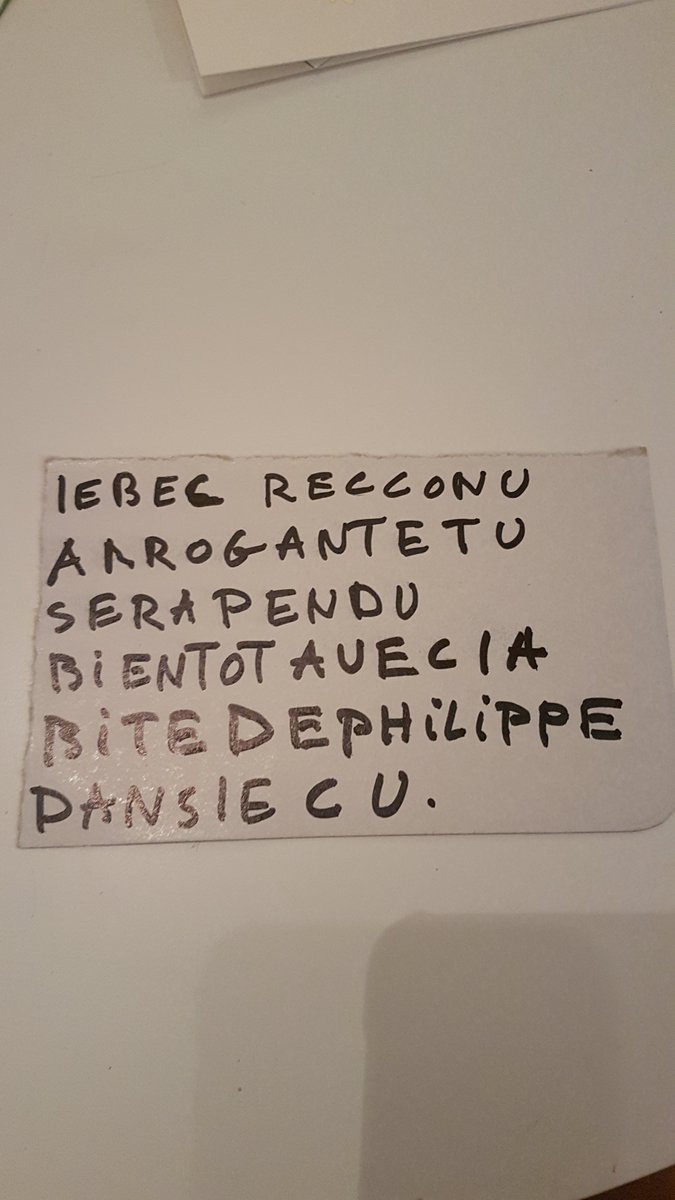 IEBEC RECCONU
ARROGANTETU
SERAPENDU
BiENTOT AVECIA
BiTE DEPHiLiPPE
DANSIE CU.